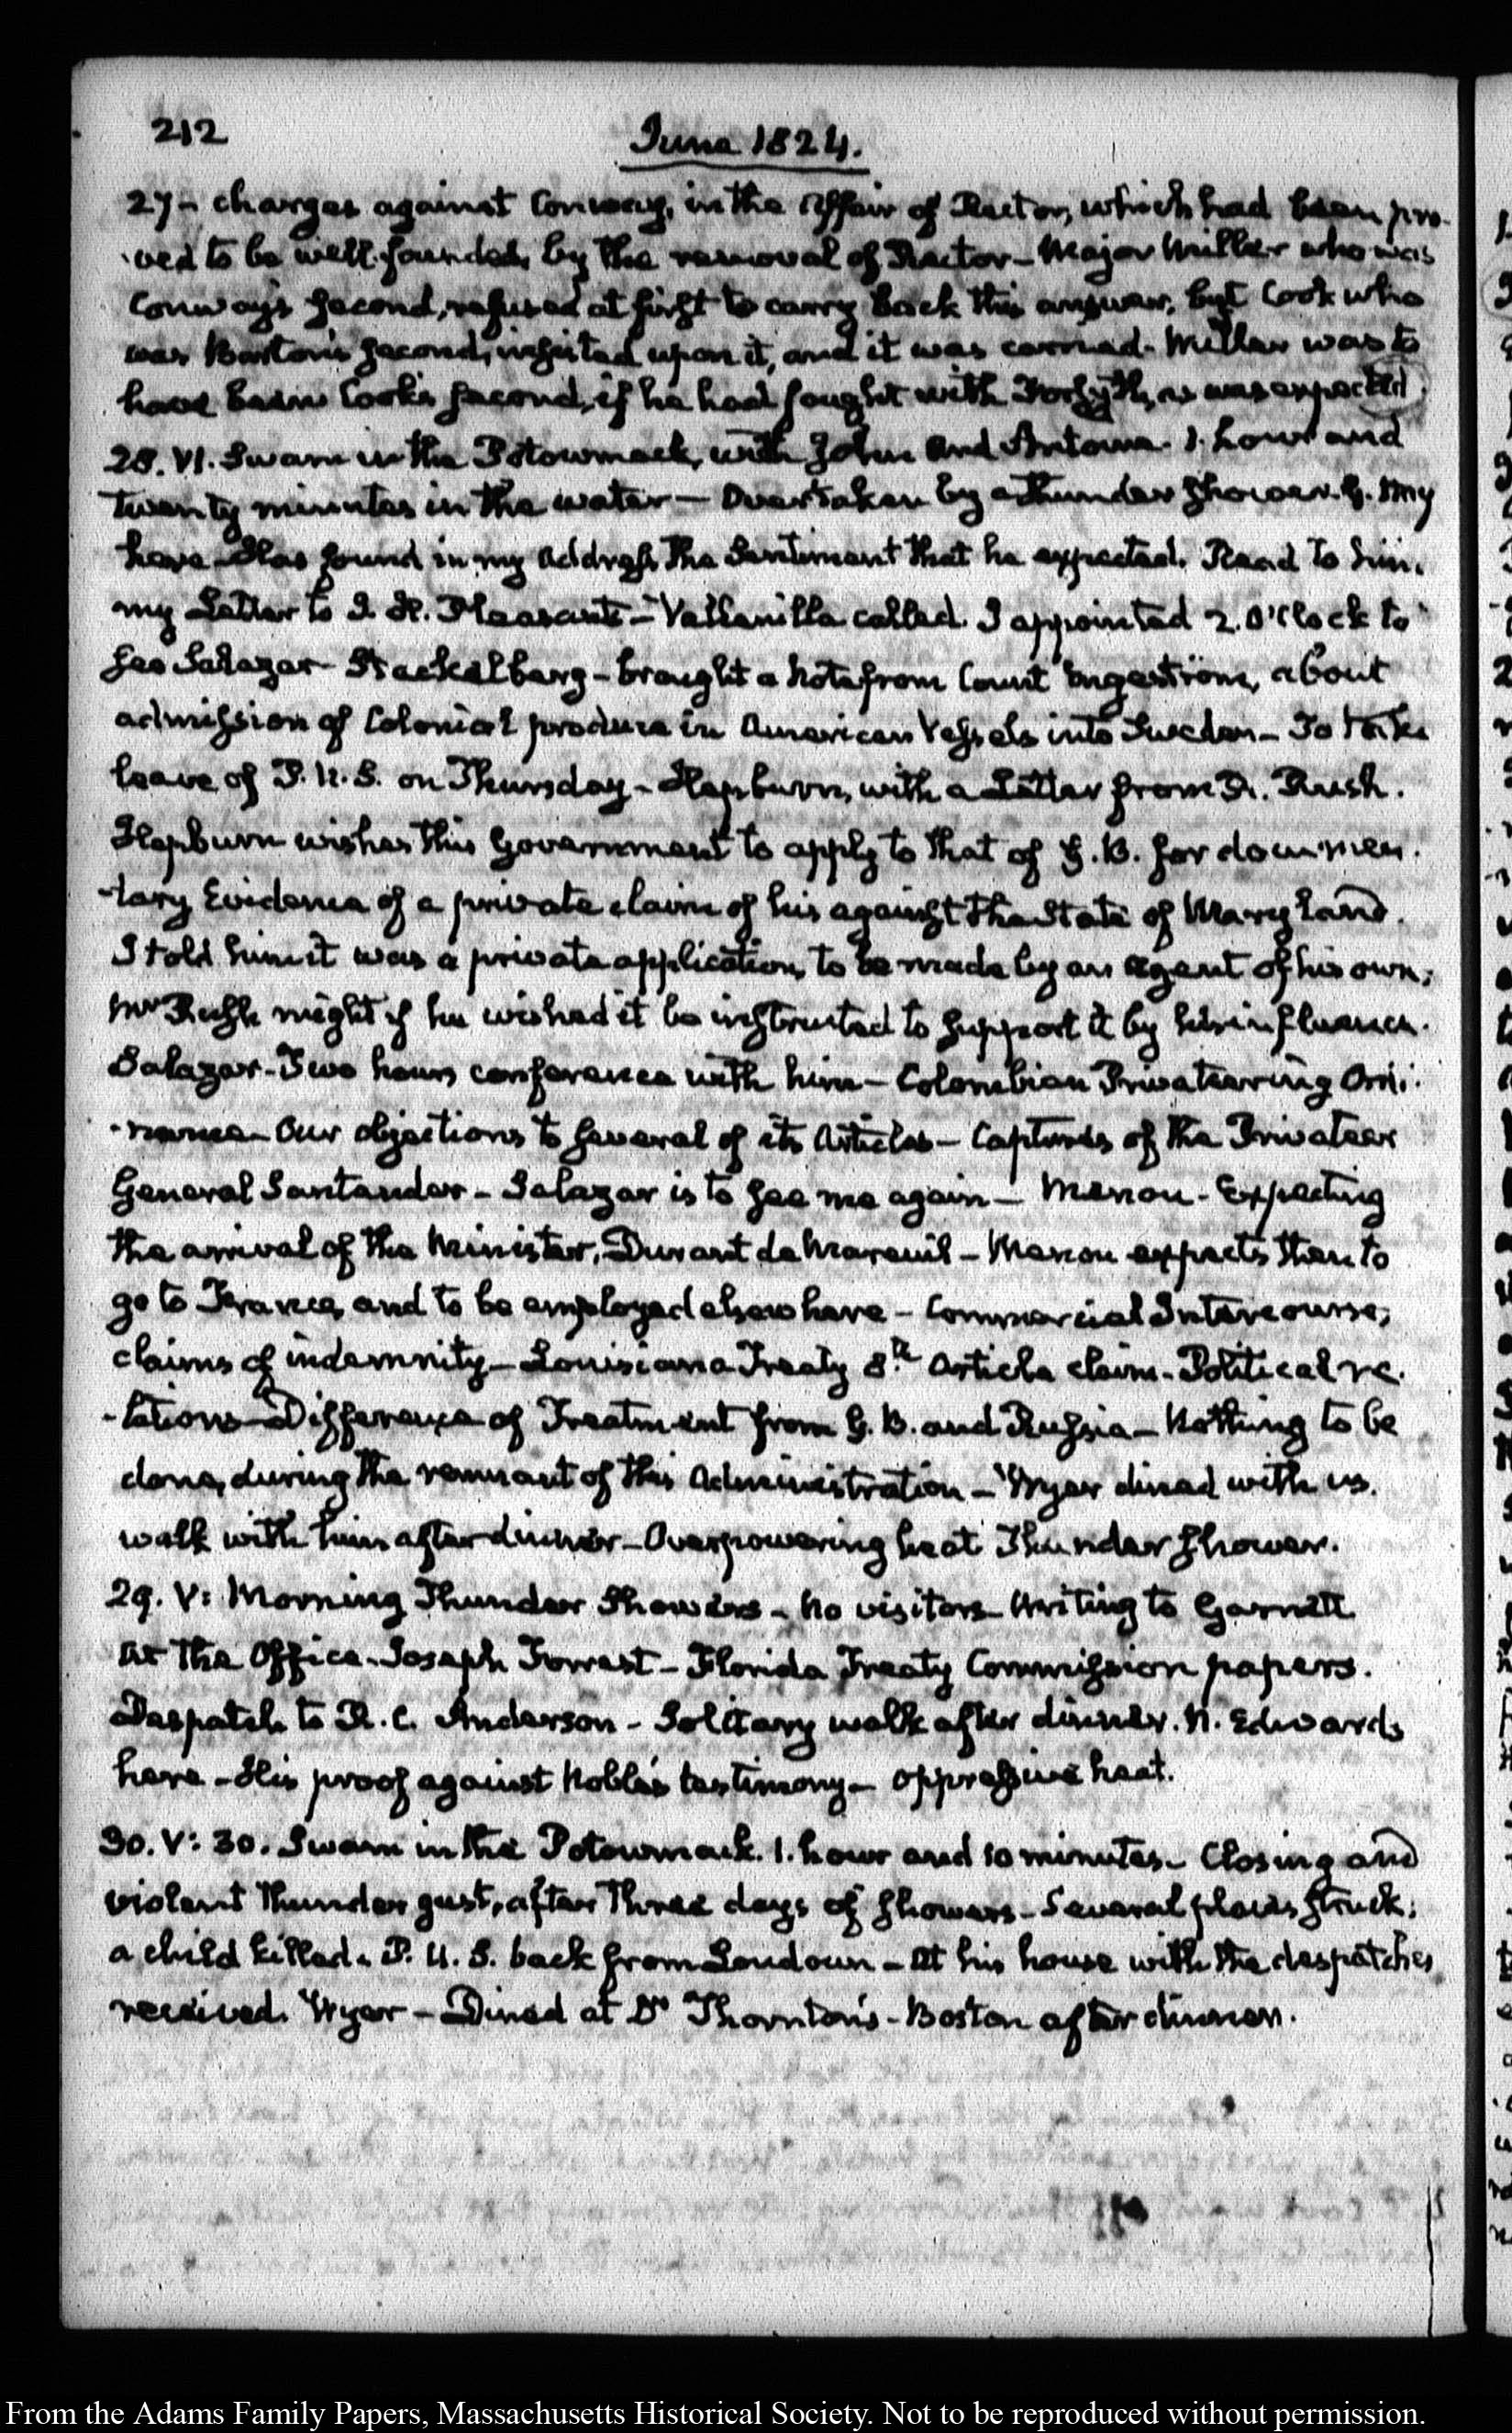 212
June 1824.
27- charges against Conway, in the affair of Rector, which had been pro-
ved to be well founded, by the removal of Rector- Major Miller who was
Conway's second, refused at first to carry back this answer, but Cook who
was Barton's second, insisted upon it, and it was carried. Miller was to
have been Cook's second, if he had fought with Forsyth, as was expected.
28. VI. Swam in the Potowmack, with John and Antoine. 1. hour and
twenty minutes in the water- Overtaken by a thunder shower. G.
here- Has found in my Address the Sentiment that he expected. Read to him.
my Letter to J. H. Pleasants- called. I appointed 2. O'Clock to
see Salazar- Stackelberg- brought a Note from Count Engeström, about
admission of Colonial produce in American Vessels into Sweden- To take
leave of P. U. S. on Thursday- Hepburn, with a Letter from R. Rush.
Hepburn wishes this Government to apply to that of G. B. for documen-
-tary Evidence of a private claim of his against the State of Maryland.
I told him it was a private application, to be made by an agent of his own;
Mr Rush might if he wished it be instructed to support it by his influence.
Salazar- Two hours conference with him- Colombian Privateering Ordi-
-nance- Our objections to several of its Articles- Captures of the Privateer
General Santander- Salazar is to see me again- Menou- Expecting
the arrival of the Minister, Durant de Mareuil- Menou expects then to
go to France, and to be employed elsewhere- Commercial Intercourse;
claims of indemnity- Louisiana Treaty 8th Article claim- Political re-
-lations- Difference of Treatment from G. B. and Russia- Nothing to be
done, during the remnant of this Administration- Wyer dined with us.
walk with him after dinner- Overpowering heat Thunder shower.
29. V: Morning Thunder Showers- No visitors- Writing to Garnett
At the Office- Joseph Forrest- Florida Treaty Commission papers.
Despatch to R. C. Anderson- Solitary walk after dinner. N. Edwards
here- His proof against Noble's testimony- oppressive heat.
30. V: 30. Swam in the Potowmack. 1. hour and 10 minutes- Closing and
violent thunder gust, after three days of showers- Several places struck;
a child killed. P. U. S. back from Loudoun- At his house with the despatches
received. Wyer- Dined at Dr Thornton's- Boston after dinner.
From the Adams Family Papers, Massachusetts Historical Society. Not to be reproduced without permission.